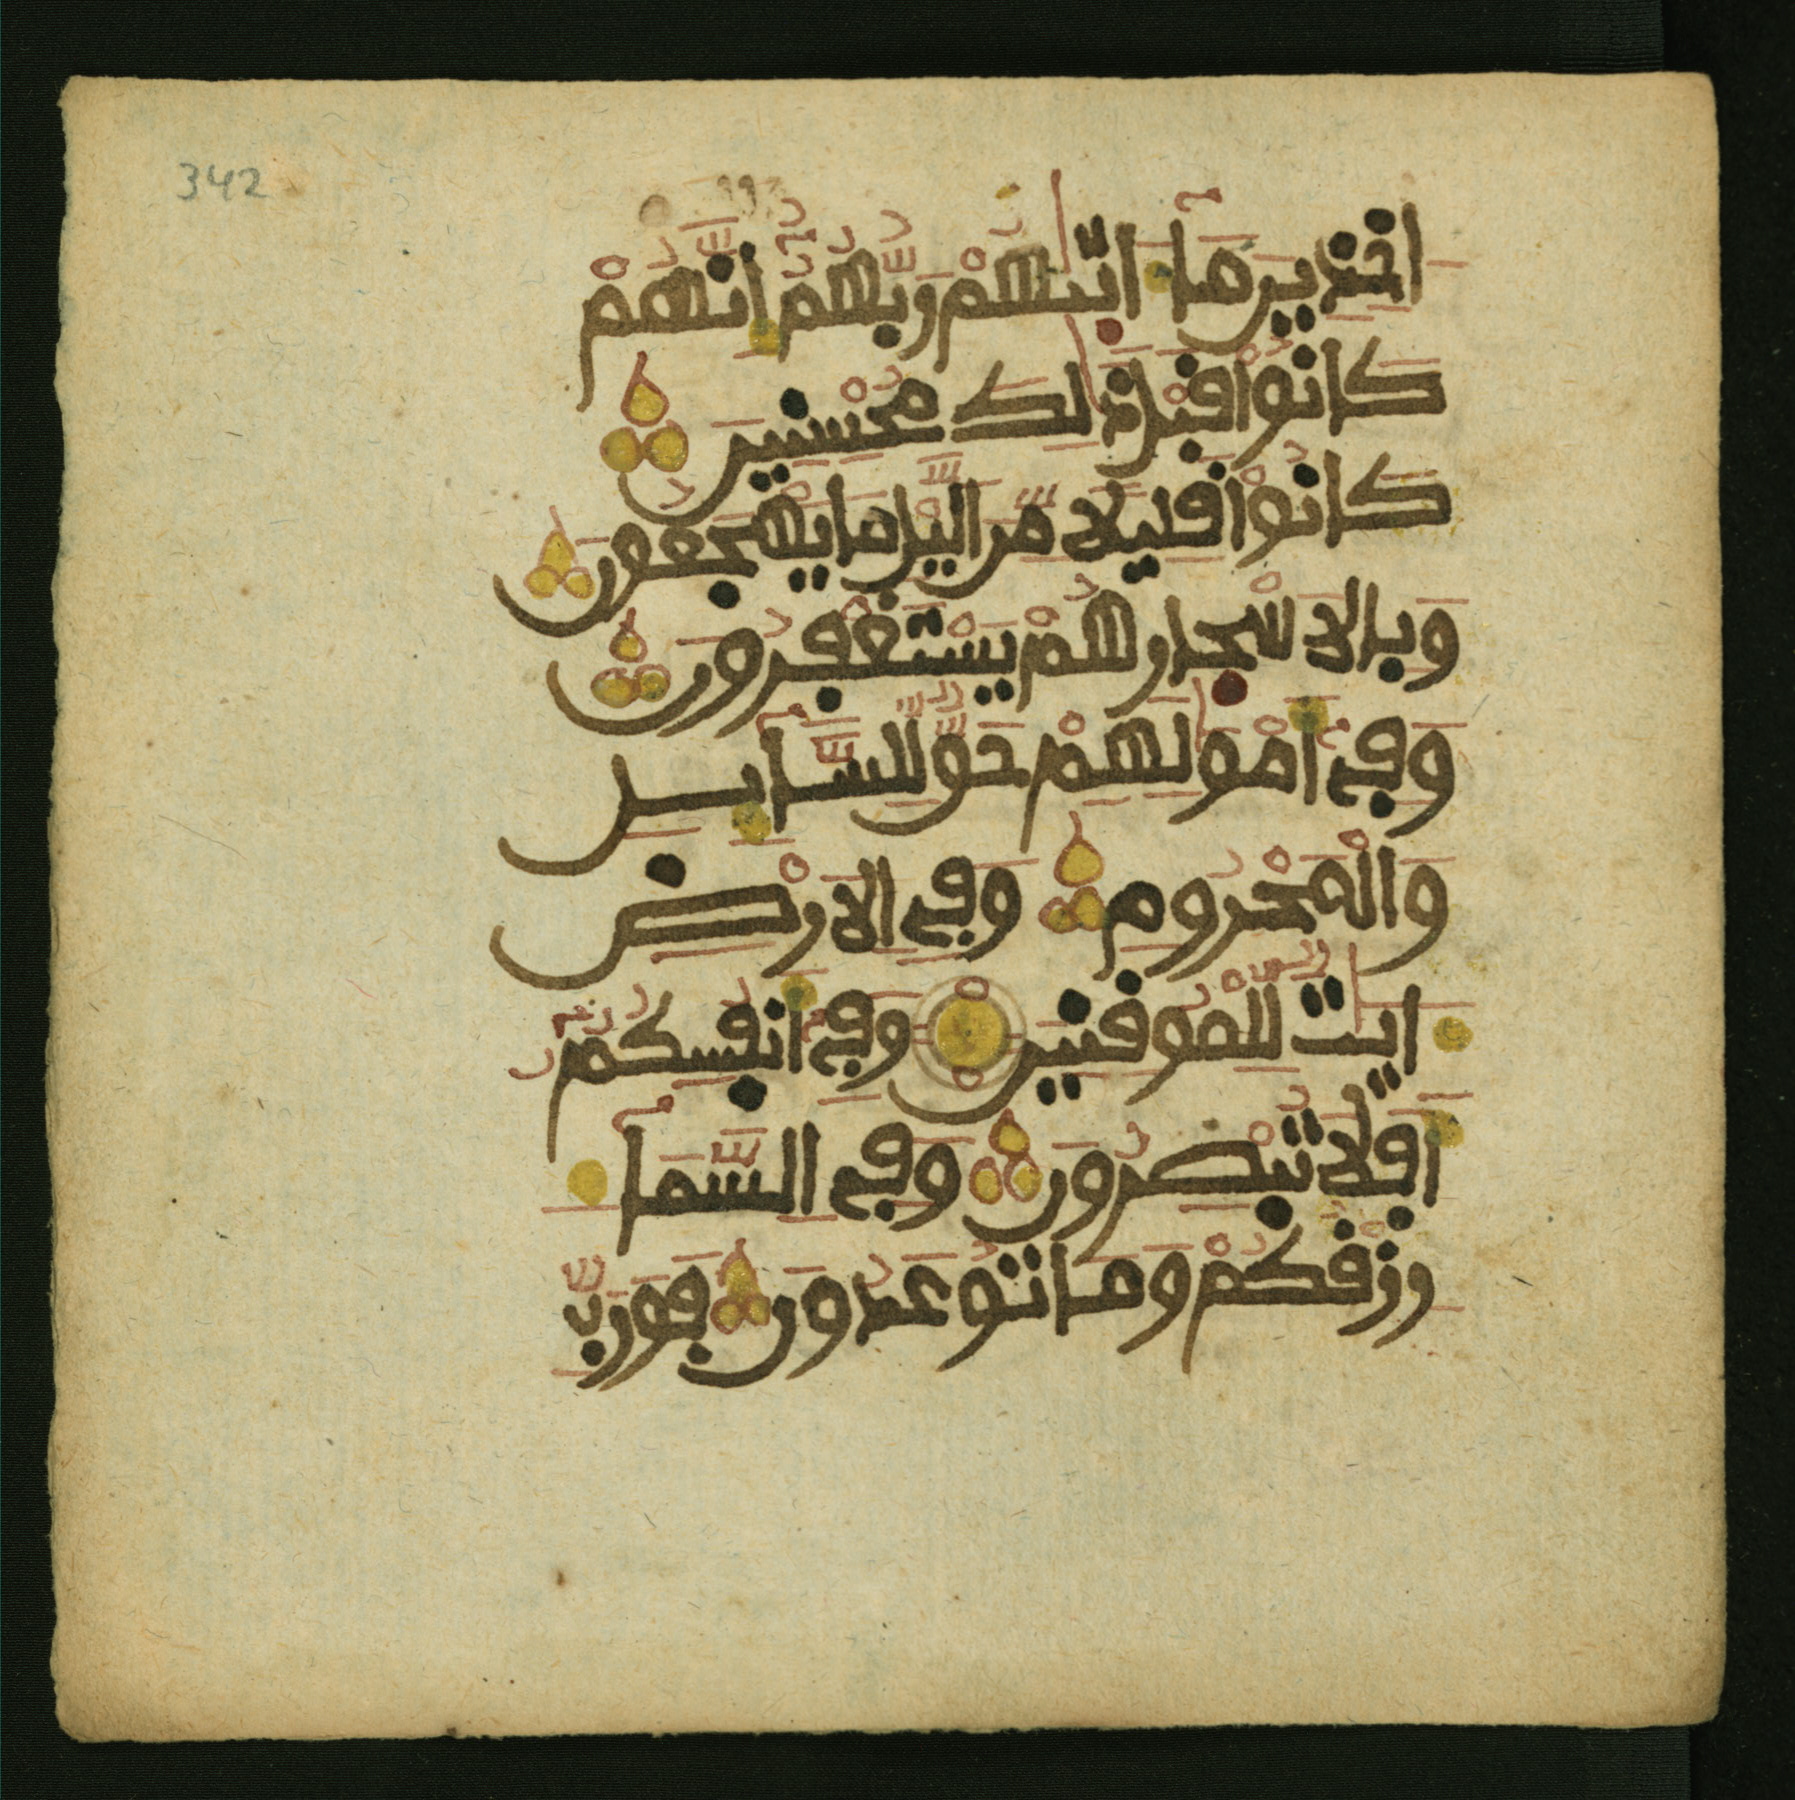 342
اخذين ما اتيهم ربهم انهم
كانوا قبل ذلك محسنين
كانوا قليلا من اليل ما يهجعون
وبالاسحار هم يستغفرون
وفي اموالهم حق للسايل
والمحروم وفي الارض
ايت للموقنين وفي انفسكم
افلا تبصرون وفي السما
رزقكم وما توعدون فورب